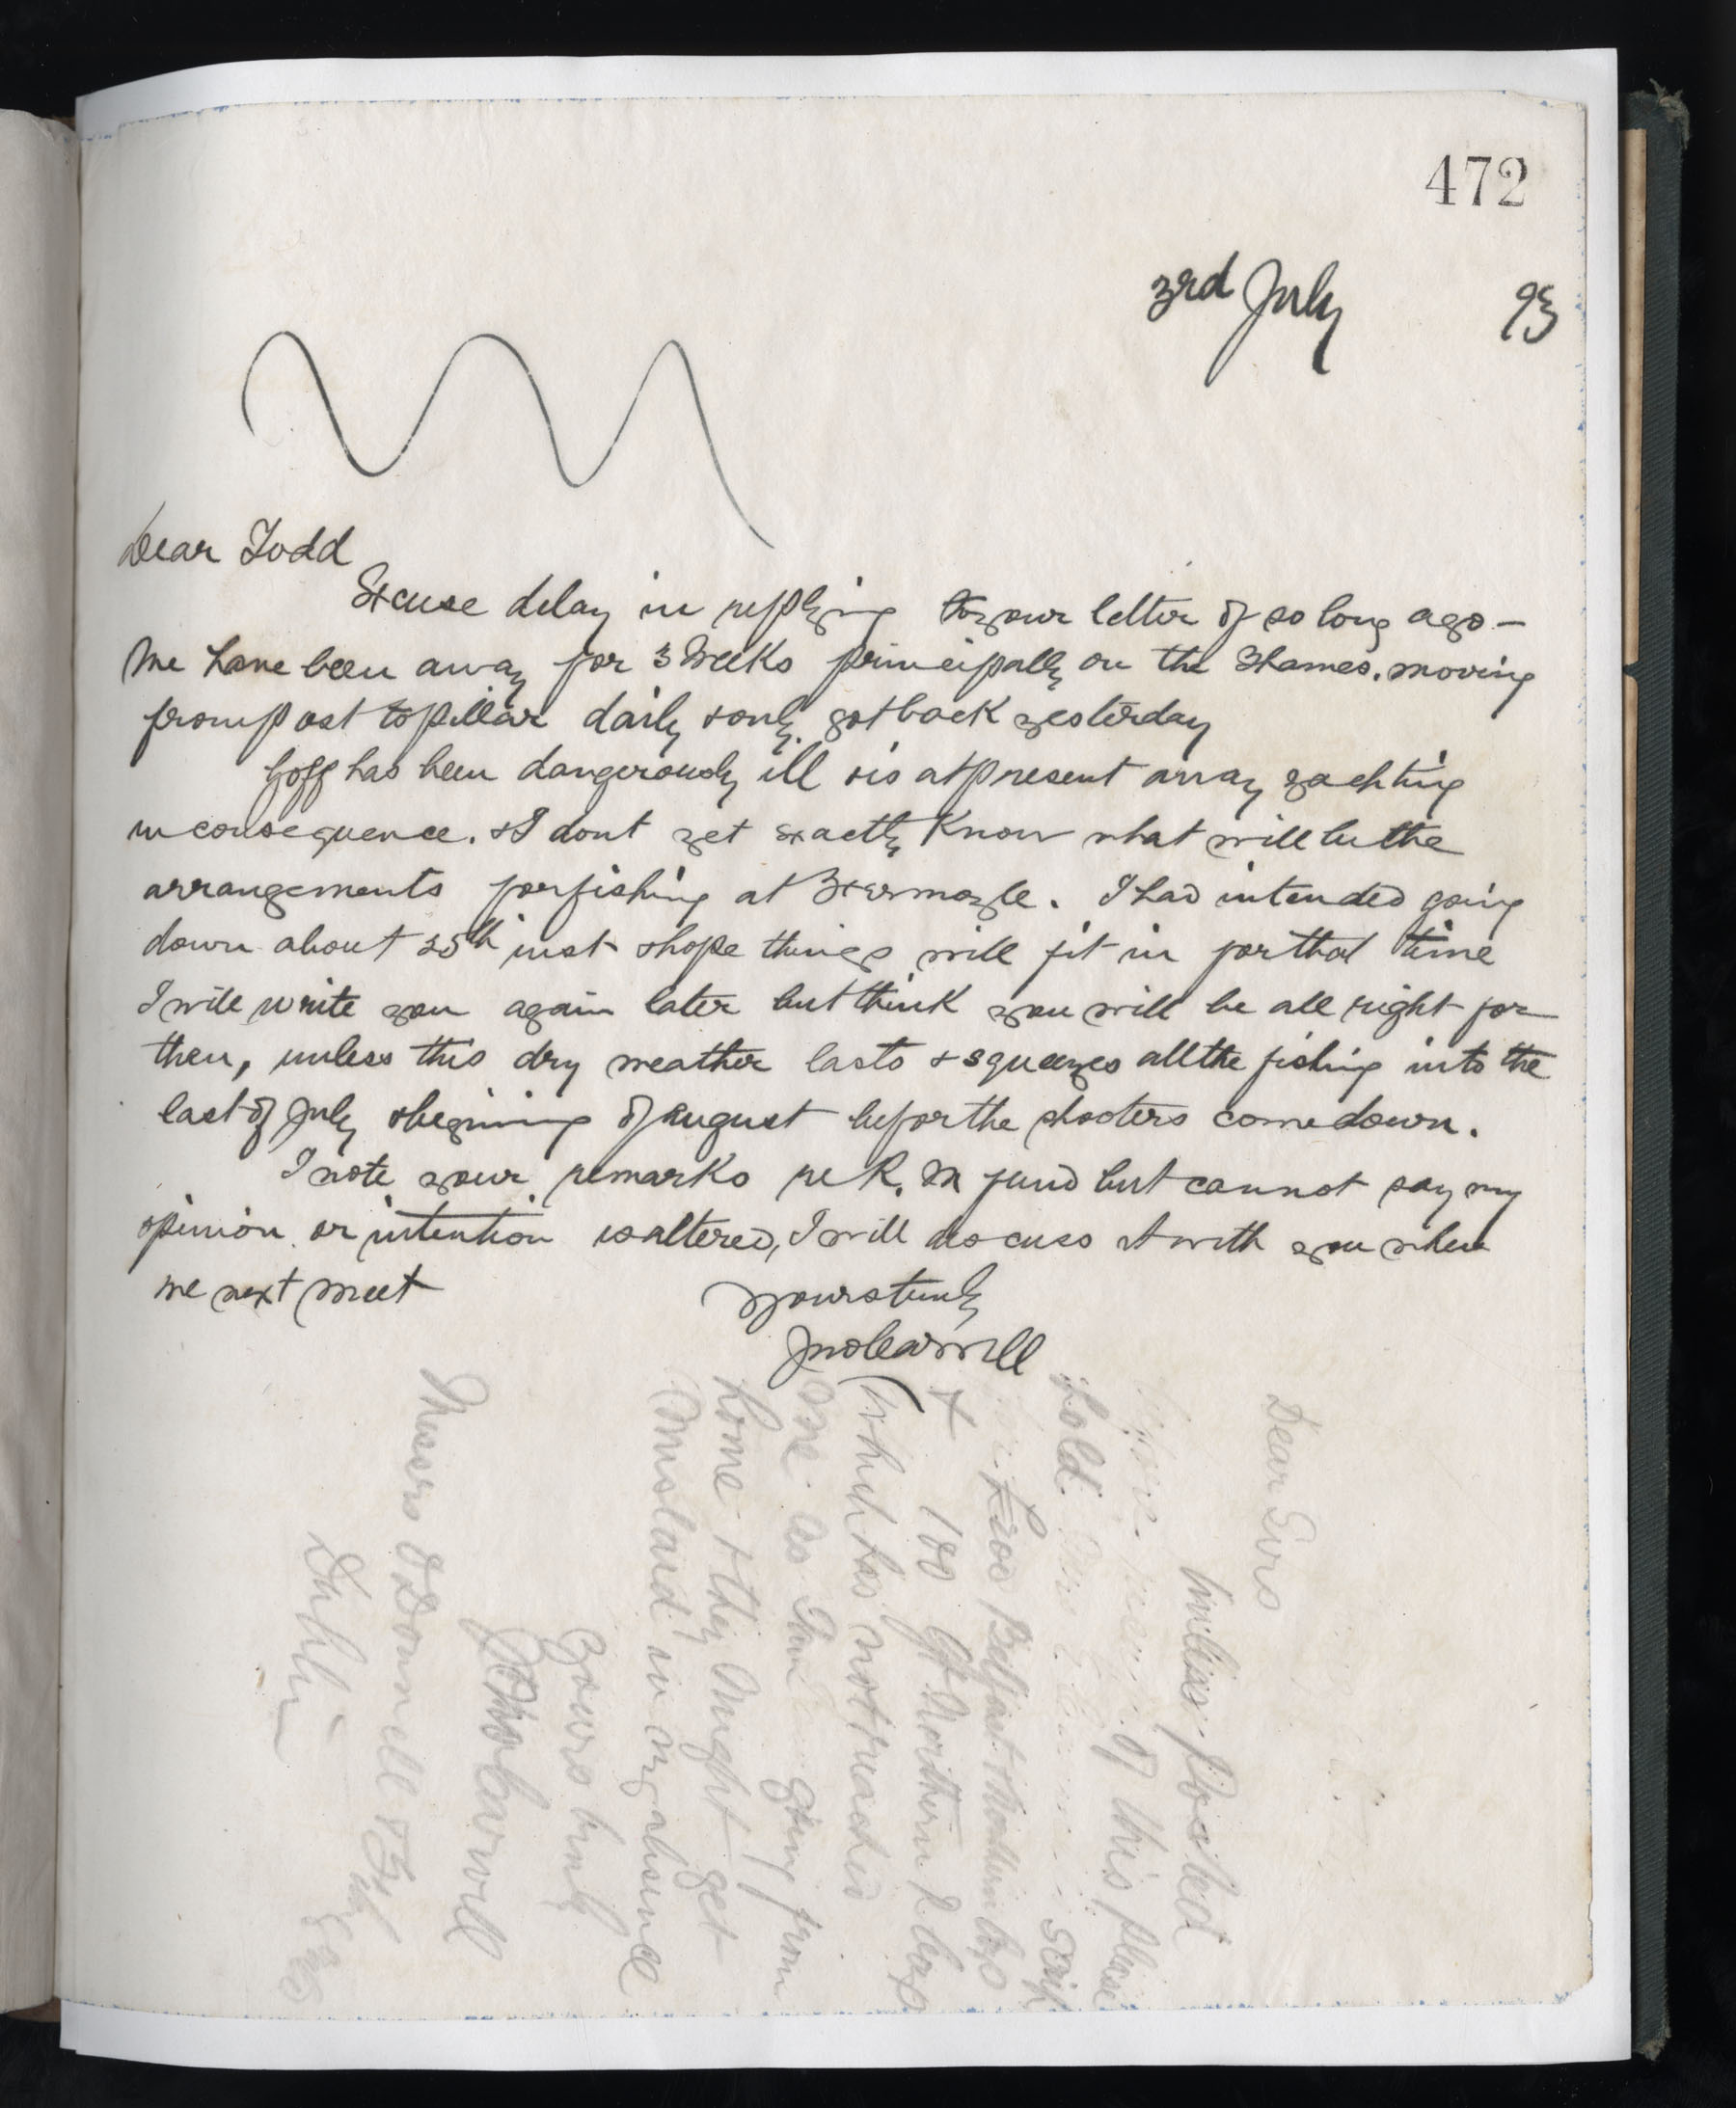 472
3rd July 93
Dear Todd
Excuse delay in replying to your letter of so long ago -
We have been away for 3 Weeks principally on the Thames. moving
from post to pillar daily & only got back yesterday
Goff has been dangerously ill & is at present away yachting
in consequence. & I dont yet exactly Know what will be the
arrangements for fishing at . I had intended going
down about 25th inst & hope things will fit in for that time
I will write you again later but think you will be all right for
then, unless this dry weather lasts & squeezes all the fishing into the
last of July & begining of August befor the shooters come down.
I note your remarks re R. M fund but cannot say my
opinion or intention is altered, I will discuss it with you when
we next meet
Yours truly
Jno Carvill
Dear Sirs
Unless posted
of this please
hold
£200 Belfast & Northern
& 100 Gt Northern
which has not reached
one as going from
home & they might get
mislaid in my absence
Yours truly
Jno Carvill
Messrs O'Donnell & Fitz
Dublin